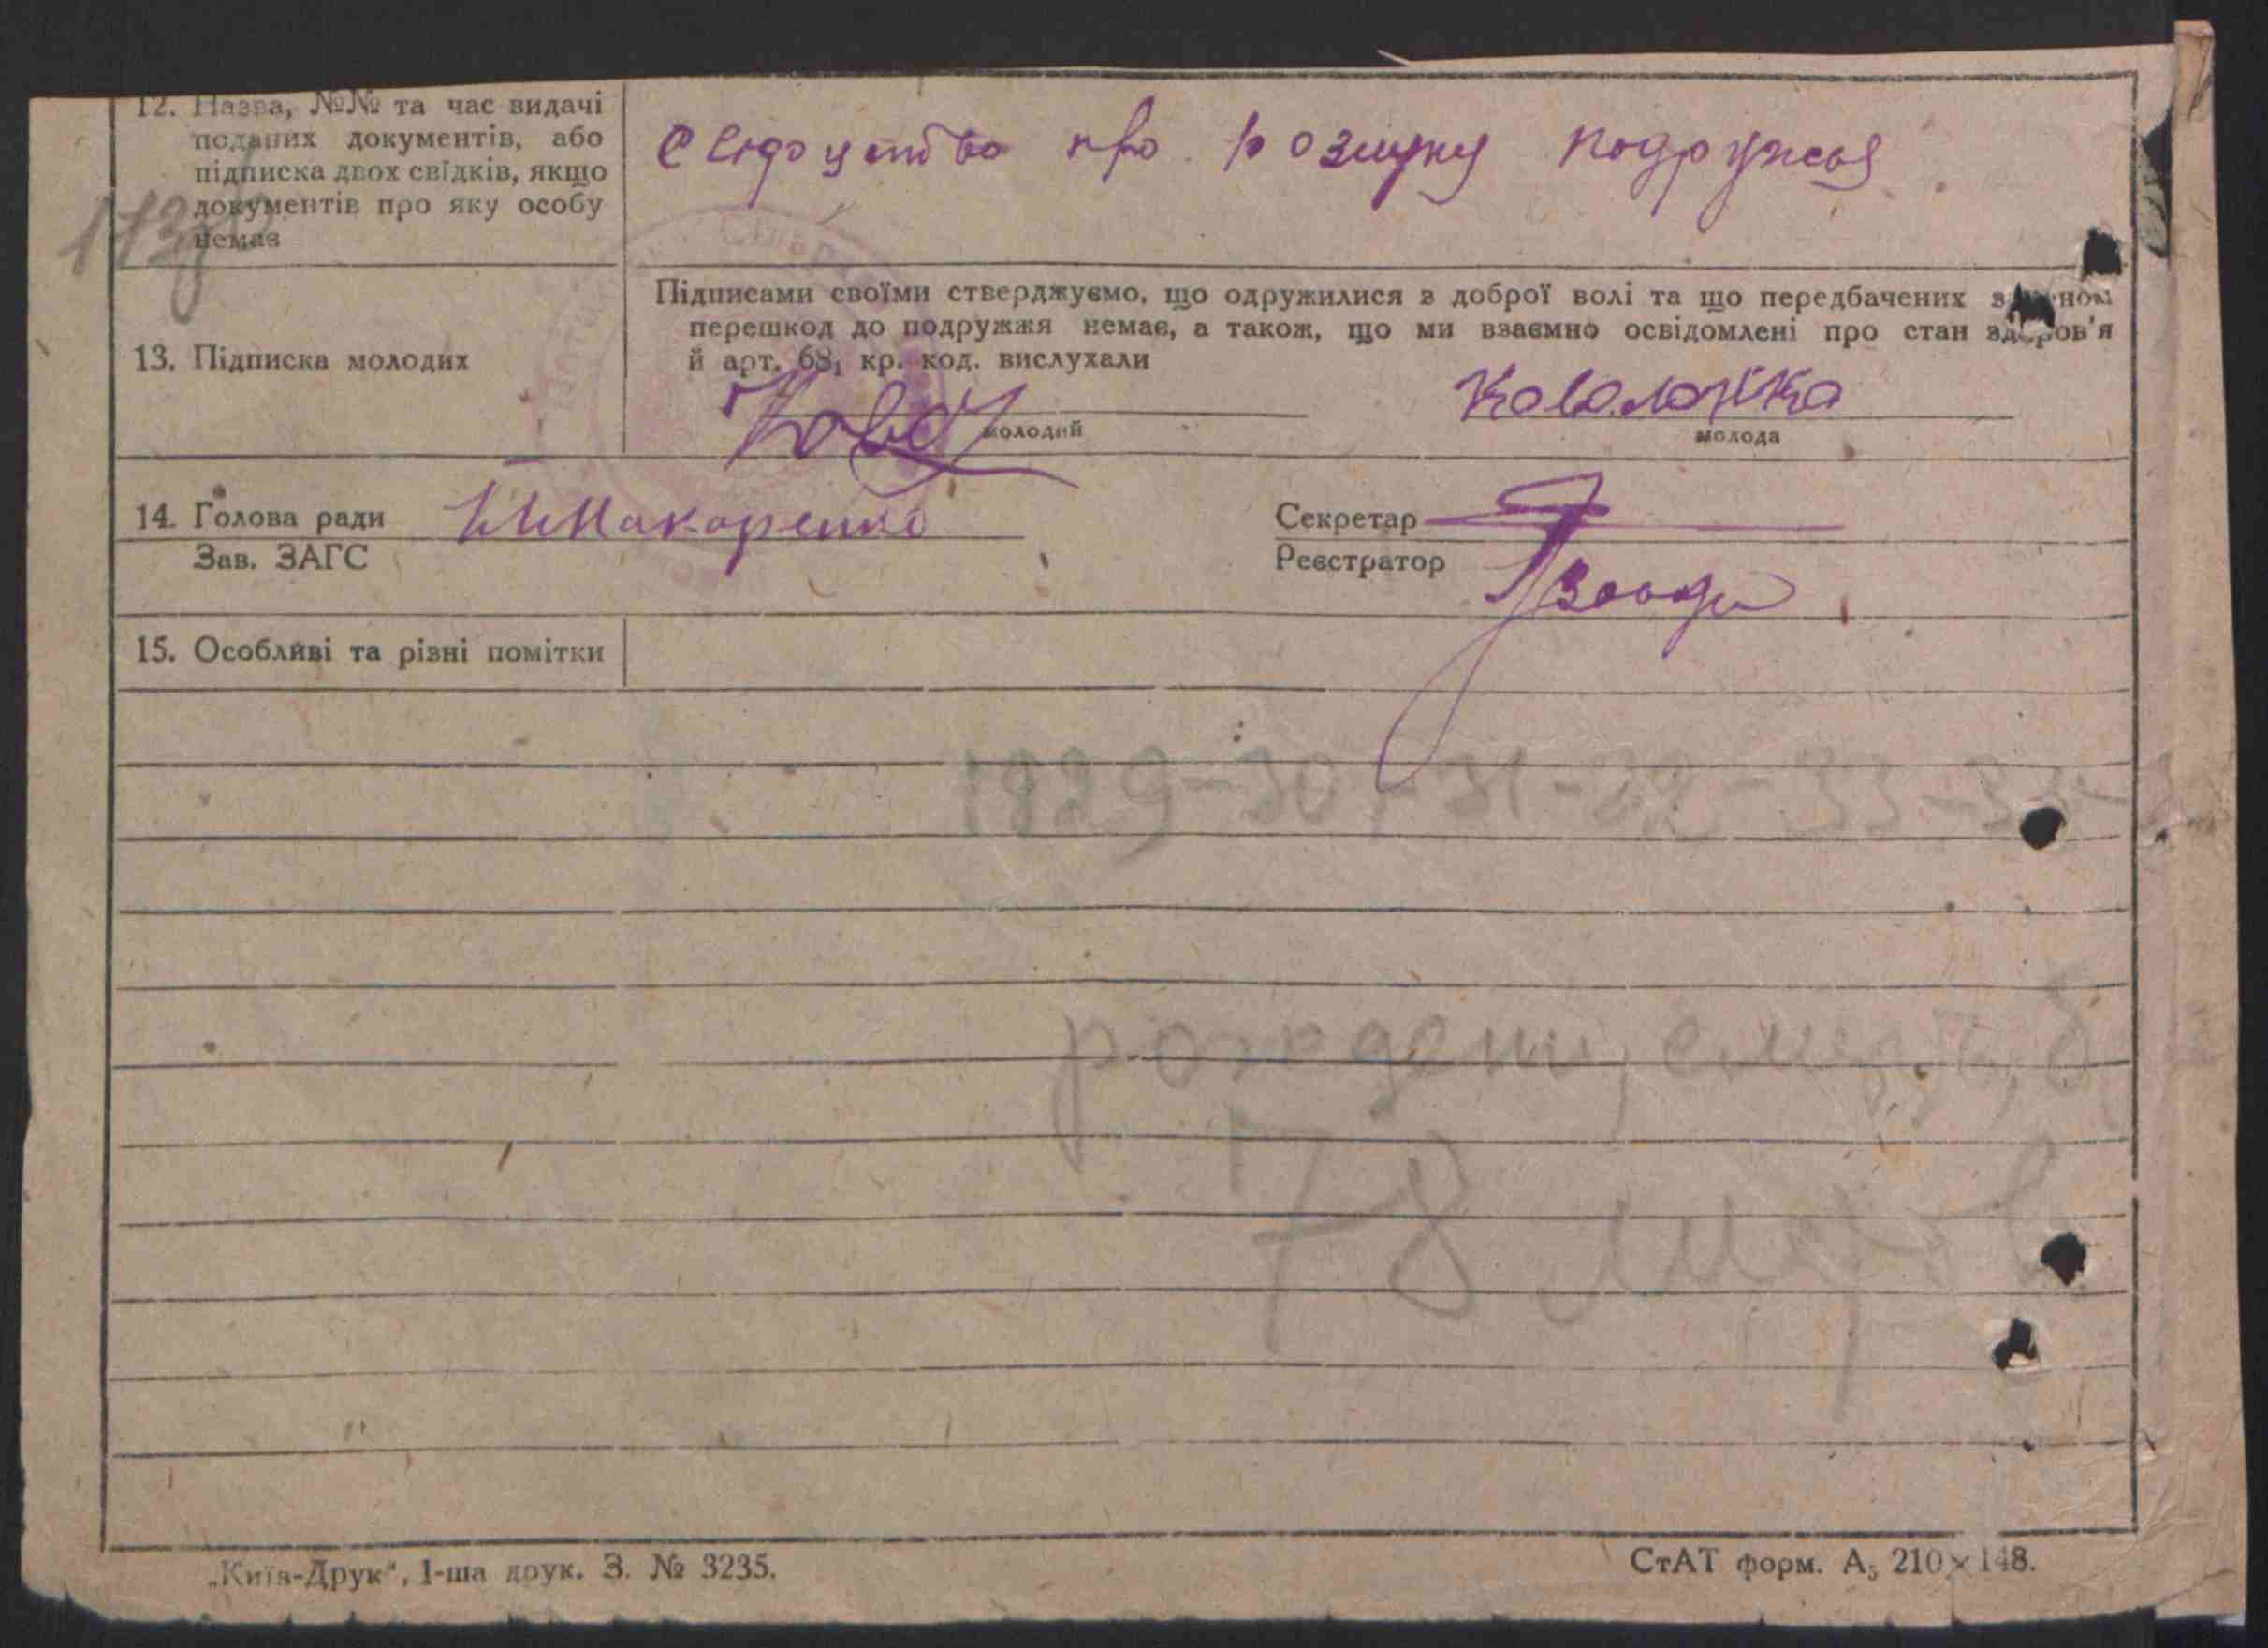 12. Назва, №№ та час видачі
поданих документів, або
підписка двох свідків, якщо
документів про яку особу
немає
Свідоцтво про розлуку подружжя
173
Підписами своїми стверджуємо, що одружилися з доброї волі та що передбачених законом
перешкод до подружжя немає, а також, що ми взаємно освідомлені про стан здоров'я
й арт. 68₁ кр. код. вислухали
13. Підписка молодих
молодий
Ковалюжка
молода
14. Голова ради Макаренко
Секретар
Зав. ЗАГС
Реєстратор
15. Особливі та різні помітки
1929-30-31-32-33-34-
78
„Київ-Друк", 1-ша друк. З. № 3235.
СтАТ форм. А₅ 210×148.